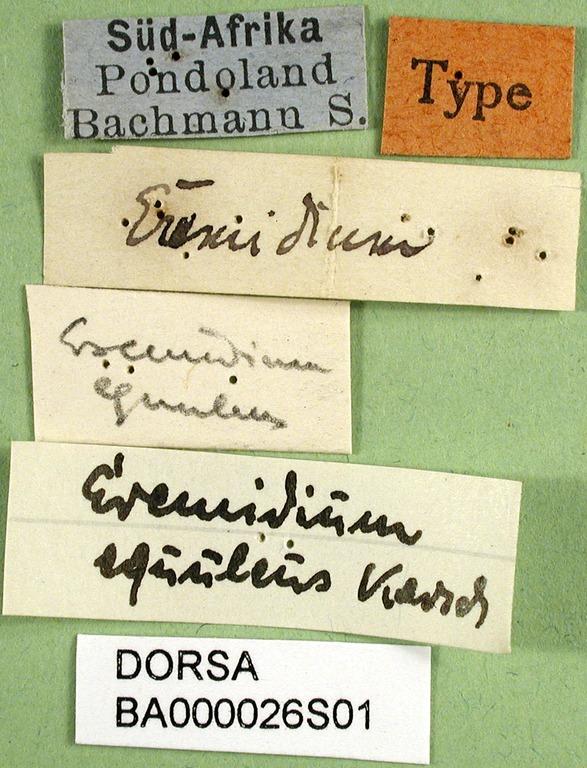 Süd-Afrika
Pondoland
Bachmann S.
Type
Eremidium
Eremidium
equuleus
Eremidium
equuleus Karsch
DORSA
BA000026S01